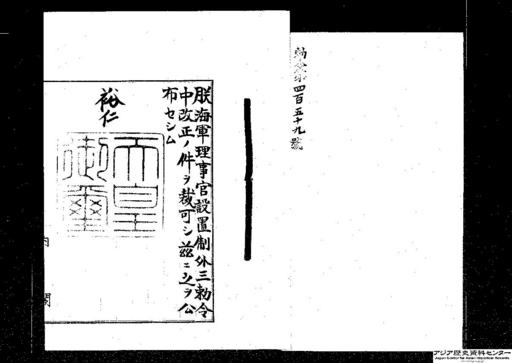 勅令第四百五十九號
朕海軍理事官設置制外三勅令
中改正ノ件ヲ裁可シ茲ニ之ヲ公
布セシム
裕仁
天皇
御璽
内閣
アジア歴史資料センター
Japan Center for Asian Historical Records